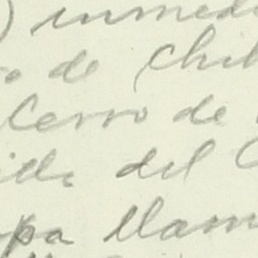 ) inmedi
o de Chil
Cerro de
ille del C
pa llam